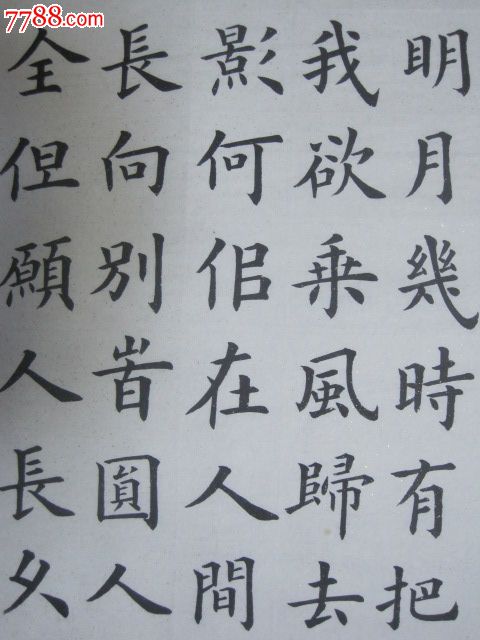 7788.com
明月幾時有把
我欲乗風歸去
影何佀在人間
長向別旹圓人
全但願人長乆